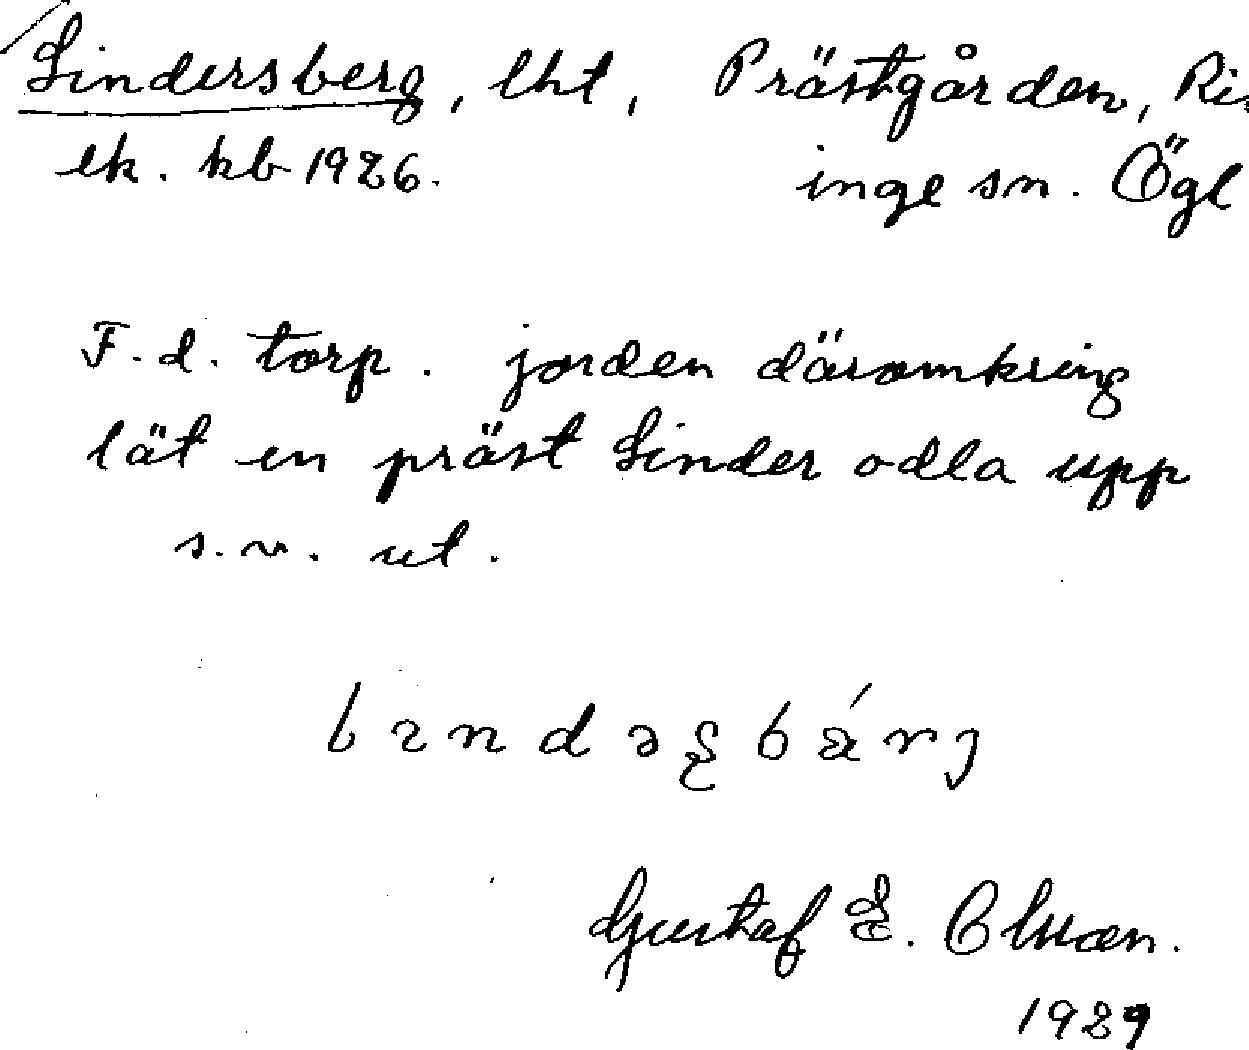 Lindersberg, lht, Prästgården, Ri
ek. kb 1926. inge sn. Ögl
F.d. torp. jorden däromkring
lät en präst Linder odla upp
s.v. ut.
Gustaf E. Olsson.
1929